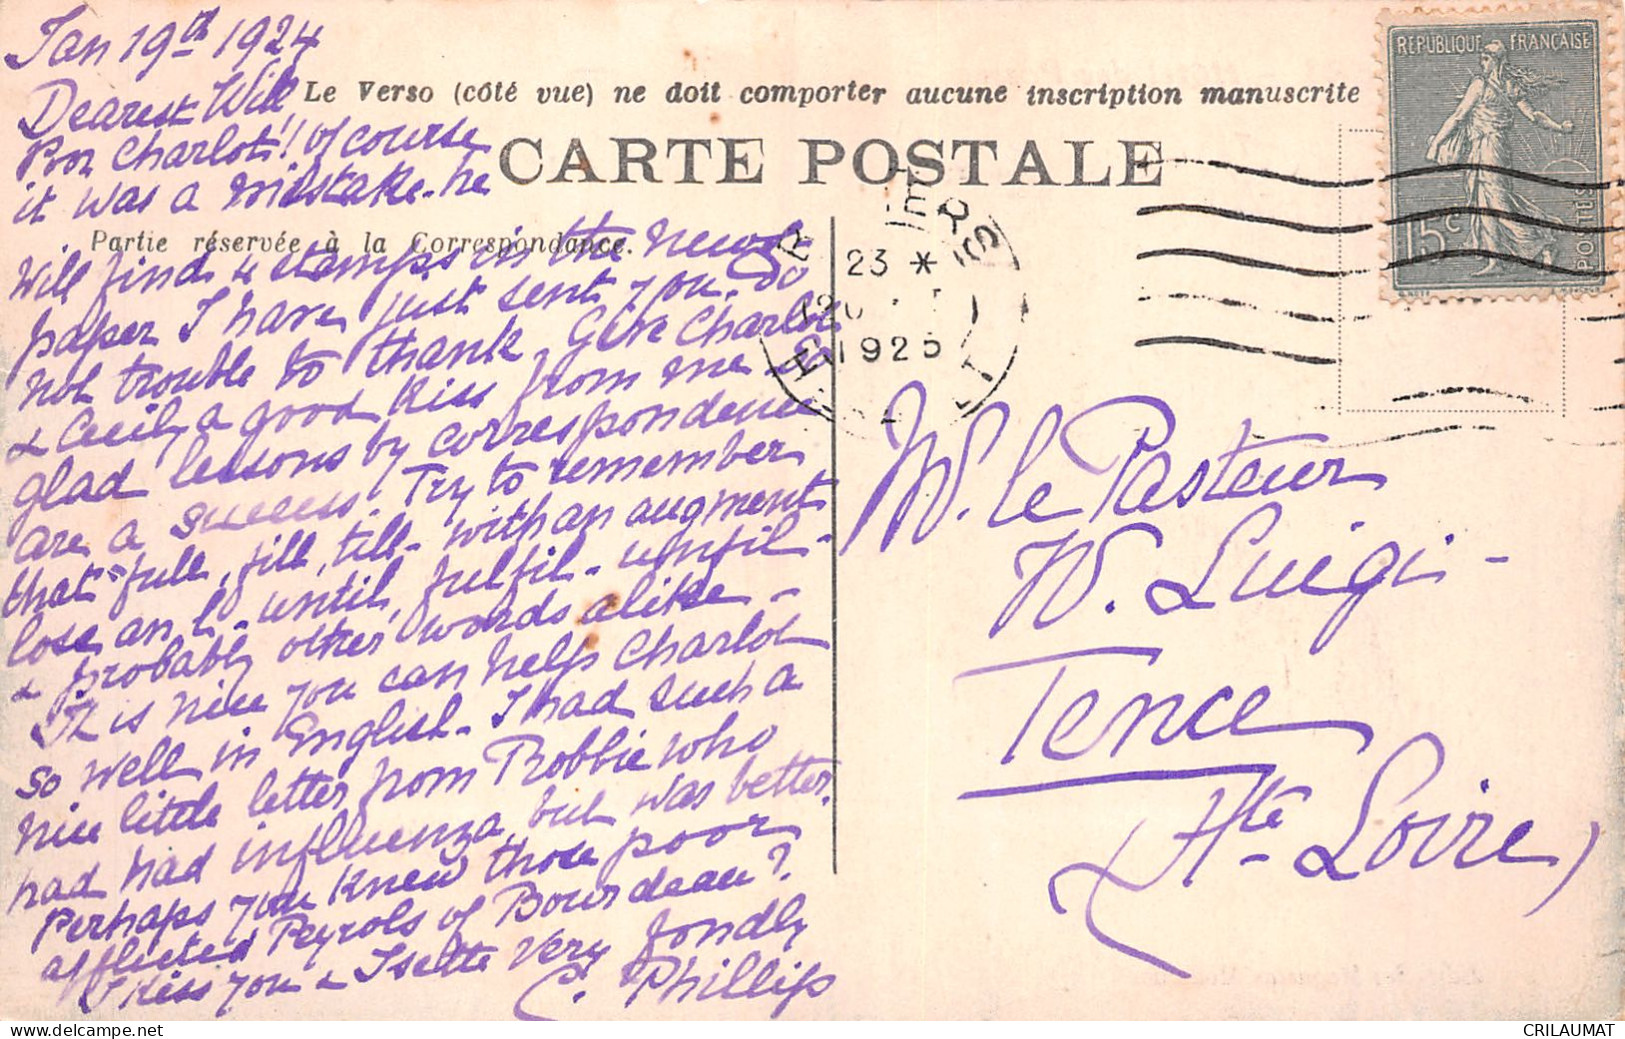 Jan 19th 1924
Dearest Will,
Le Verso (côté vue) ne doit comporter aucune inscription manuscrite
CARTE POSTALE
Poor Charlot!! Of course
it was a mistake - he
Partie réservée à la Correspondance.
will find 4 stamps in the news
paper I have just sent you. Do
not trouble to thank. Give Charlot
& Cecily a good kiss from me. So
glad lessons by correspondence
are a success. Try to remember
that full, fill, till - with an augment
lose an l - until, fulfil - unfil -
& probably other words alike -
It is nice you can help Charlot
so well in English - I had such a
nice little letter from Robbie who
had had influenza but was better.
Perhaps you knew those poor
afflicted Peyrols of Bourdeau?
Kiss you & Isette very fondly
C. Phillips
REPUBLIQUE FRANÇAISE
15c
POSTES
23 *
1925
M. le Pasteur
W. Luigi -
Tence
(Hte - Loire)
CRILAUMAT